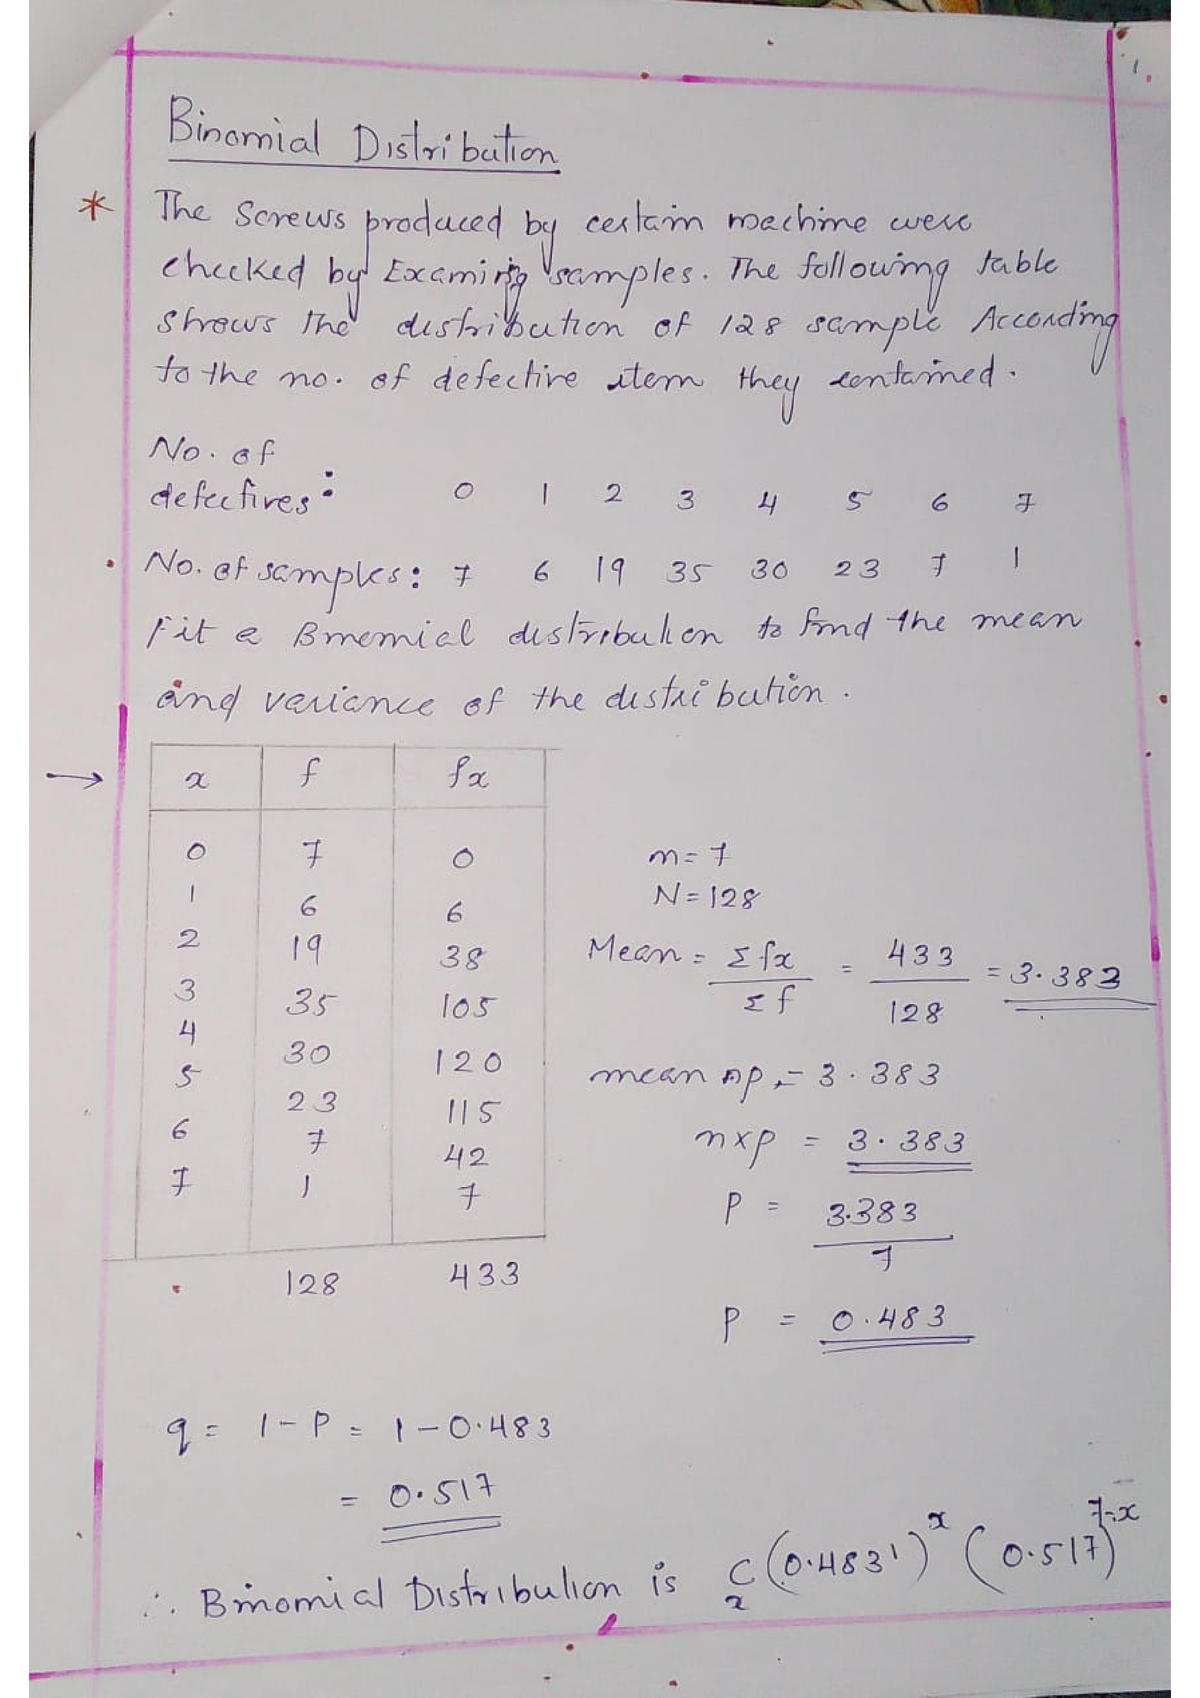 1.
Binomial Distribution
* The Screws produced by certain machine were
checked by Examining samples. The following table
shows the distribution of 128 sample According
to the no. of defective item they contained.
No. of
defectives: 0 1 2 3 4 5 6 7
No. of samples: 7 6 19 35 30 23 7 1
Fit a Binomial distribution to find the mean
and variance of the distribution.
→ x f fx
0 7 0
1 6 6
2 19 38
3 35 105
4 30 120
5 23 115
6 7 42
7 1 7
128 433
n = 7
N = 128
Mean = Σfx / Σf = 433 / 128 = 3.383
mean np = 3.383
n×p = 3.383
P = 3.383 / 7
P = 0.483
q = 1 - P = 1 - 0.483
= 0.517
∴ Binomial Distribution is C x (0.483)^x (0.517)^7-x